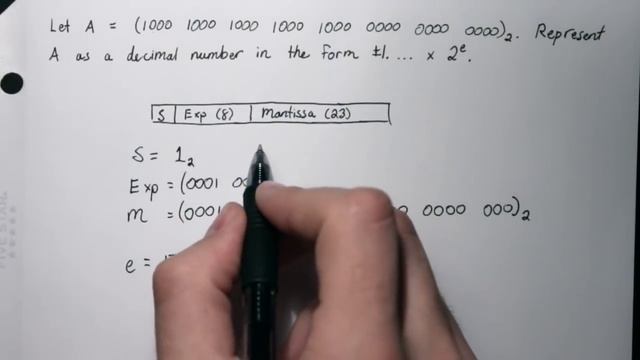 Let A = (1000 1000 1000 1000 1000 0000 0000 0000)₂. Represent
A as a decimal number in the form ±1. ... × 2ᵉ.
S Exp (8) Mantissa (23)
S = 1₂
Exp = (0001
m = (0001 0000 000)₂
e =
FIVE STAR